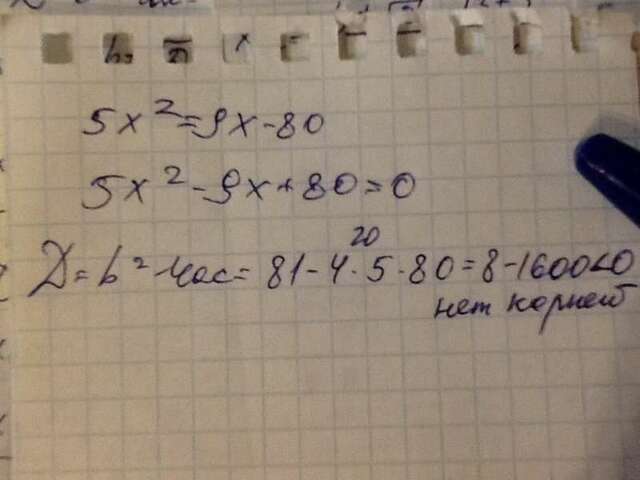 5x² = 9x - 80
5x² - 9x + 80 = 0
20
D = b² - 4ac = 81 - 4 · 5 · 80 = 8 - 1600 < 0
нет корней